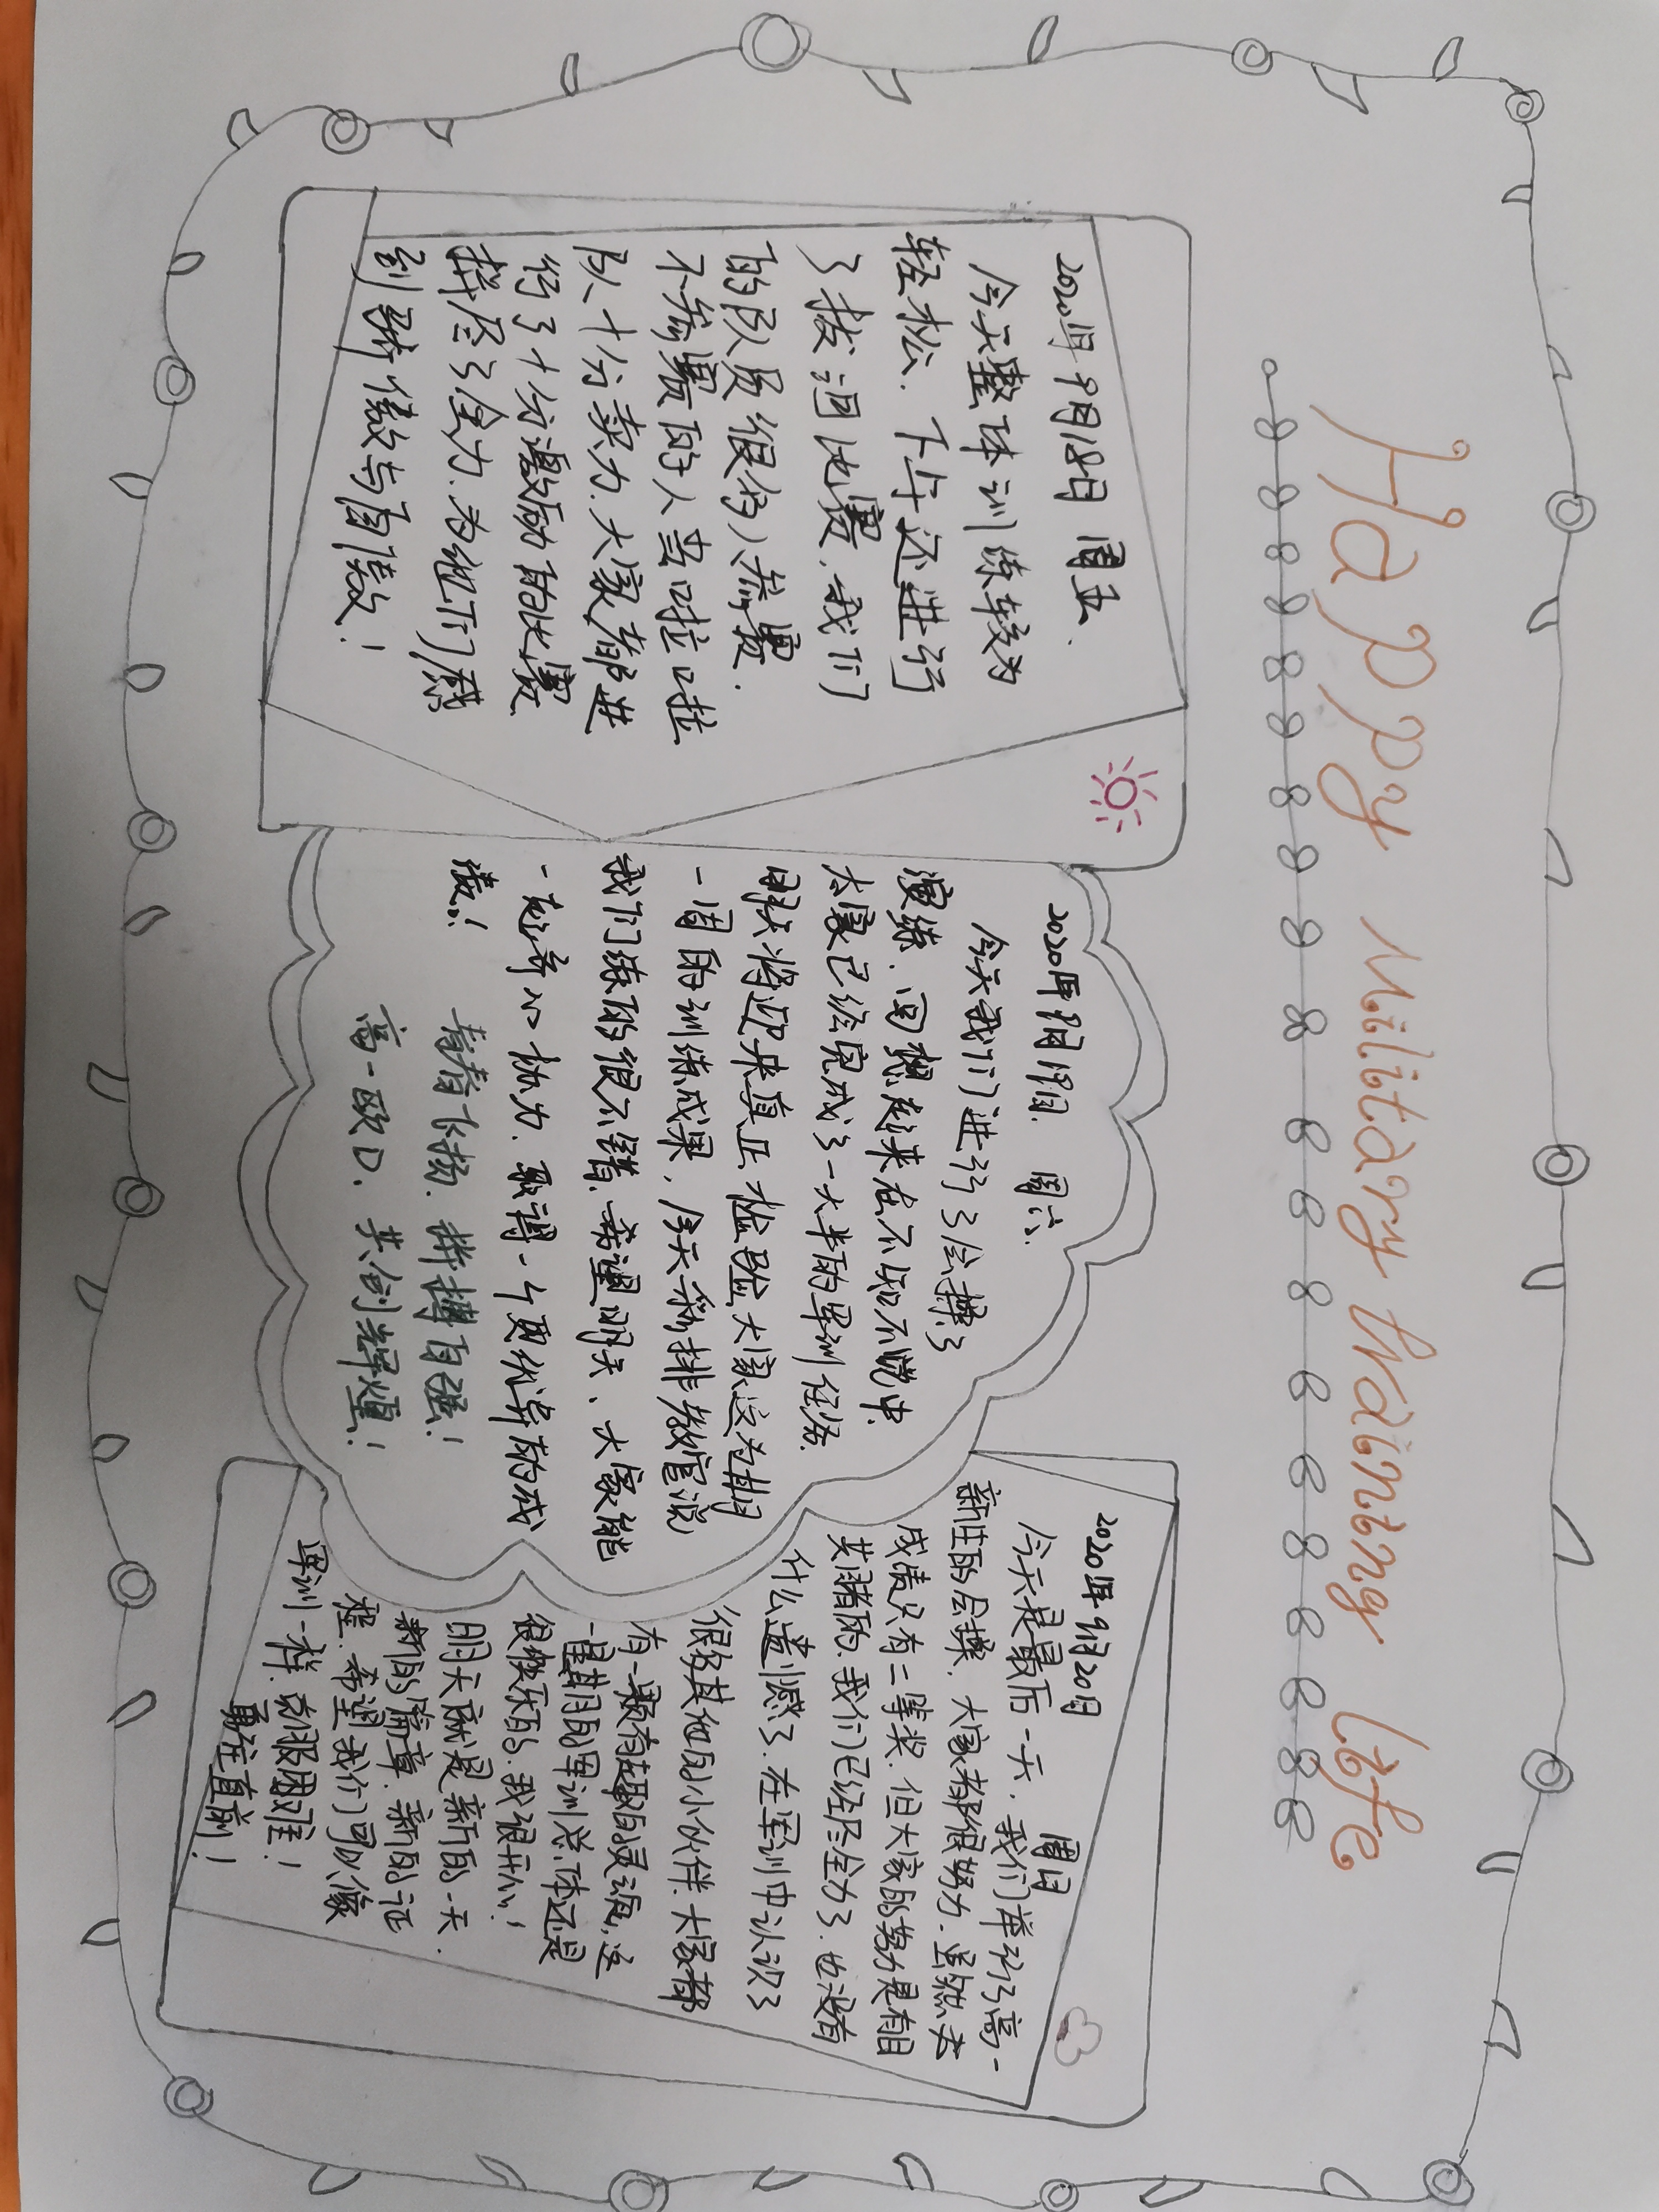 Happy Military training life
2020年9月18日 周五.
今天整体训练较为
轻松.下午还进行
了拔河比赛.我们
的队员很多人参赛.
不参赛的人当啦啦
队十分卖力.大家都进
行了十分激励的比赛
拼尽了全力.为他们感
到骄傲与自豪!
2020年9月19日 周六.
今天我们进行了会操了
演练.回想起来在不知不觉中.
大家已经完成了一大半的军训任务.
明天将迎来真正检验大家这为期
一周的训练成果.今天彩排教官说
我们练的很不错.希望明天、大家能
一起齐心协力.取得一个更优异的成
绩!
青春飞扬.拼搏自强!
高一欧D.共创辉煌!
2020年9月20日 周日
今天是最后一天.我们举行了高一
新生的会操.大家都很努力.虽然去
成绩只有二等奖.但大家的努力是有目
共睹的.我们已经尽全力了.也没有
什么遗憾了.在军训中认识了
很多其他的小伙伴.大家都
有一颗有趣的灵魂,这
一星期的军训总体还是
很快乐的.我很开心!
明天就是新的一天.
新的篇章.新的征
程.希望我们可以像
军训一样.克服困难!
勇往直前!